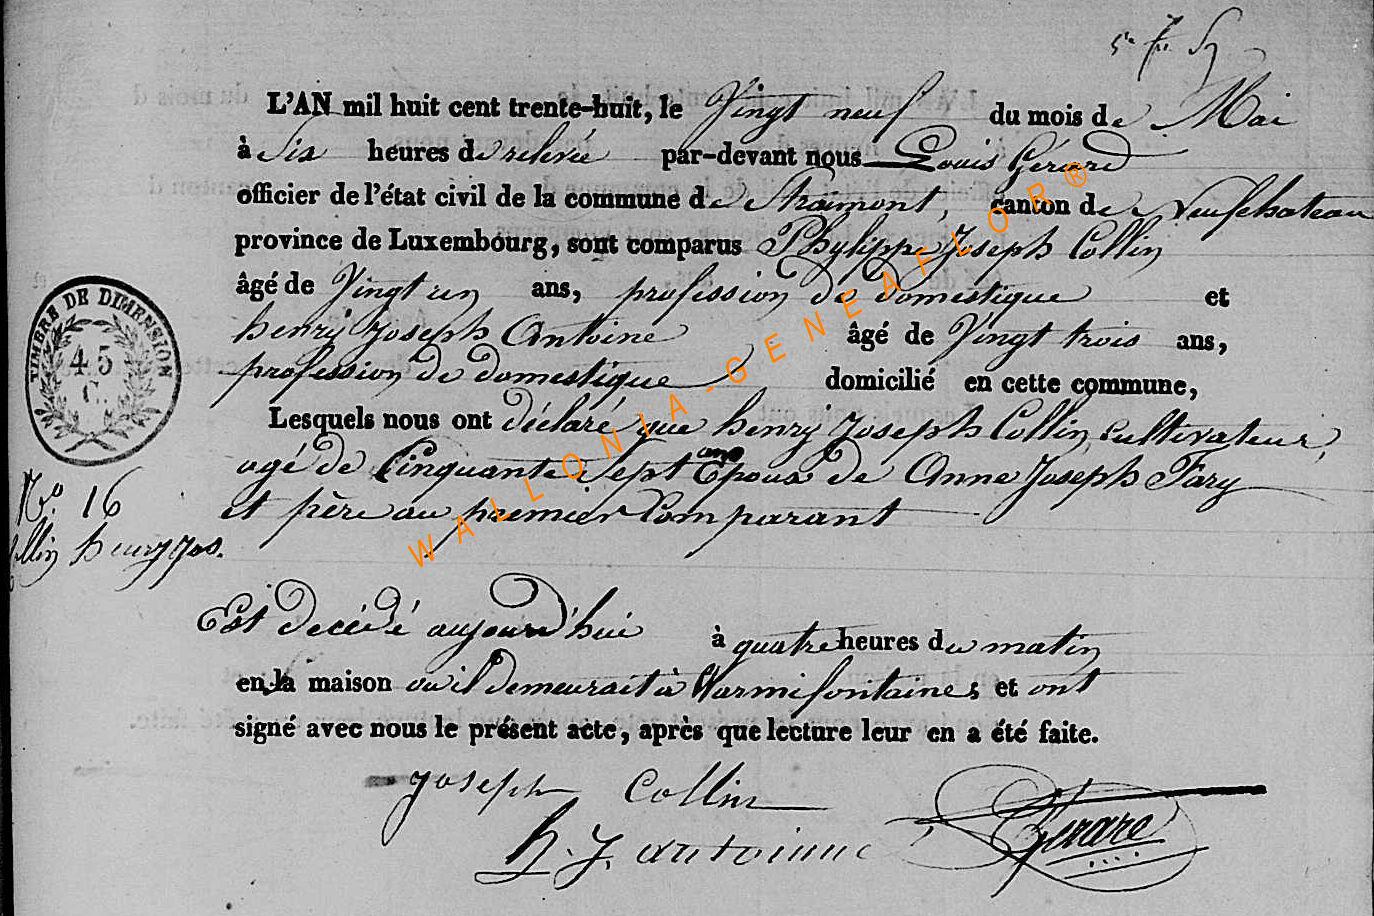 L'AN mil huit cent trente-huit, le Vingt neuf du mois de Mai
à Six heures de relevée par-devant nous Louis Gérard
officier de l'état civil de la commune de Straimont, canton de Neufchateau
province de Luxembourg, sont comparus Phylippe Joseph Collin
âgé de Vingt un ans, profession de domestique et
henry Joseph Antoine âgé de Vingt trois ans,
profession de domestique domicilié en cette commune,
Lesquels nous ont déclaré que henry Joseph Collin, cultivateur,
agé de Cinquante Sept ans Epoux de Anne Joseph Fary
et père au premier Comparant
TIMBRE DE DIMENSION
45
C.
N.º 16
Collin henry Jos.
Est decédé aujourd'hui à quatre heures du matin
en la maison ou il demeurait à Harmifontaine; et ont
signé avec nous le présent acte, après que lecture leur en a été faite.
Joseph Collin
h. J. antoinne
Gerard
WALLONIA-GENEAFLOR®